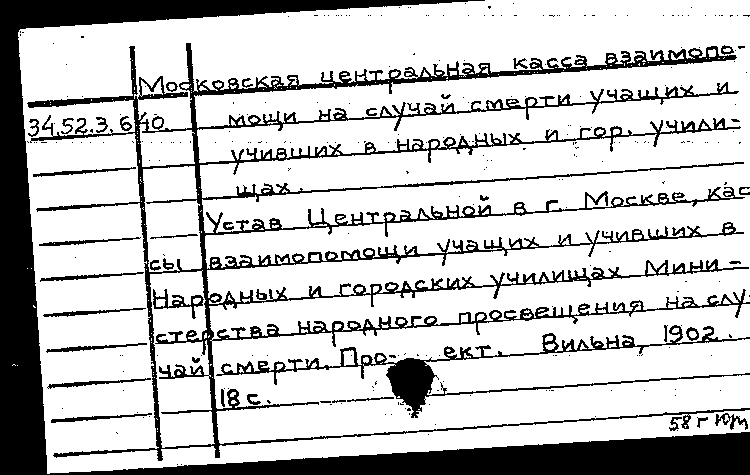 Московская центральная касса взаимопо-
34.52.3.640. мощи на случай смерти учащих и
учивших в народных и гор. учили-
щах.
Устав Центральной в г. Москве, кас
сы взаимопомощи учащих и учивших в
Народных и городских училищах Мини-
стерства народного просвещения на слу-
чай смерти. Про- ект. Вильна, 1902.
18 с.
58 г